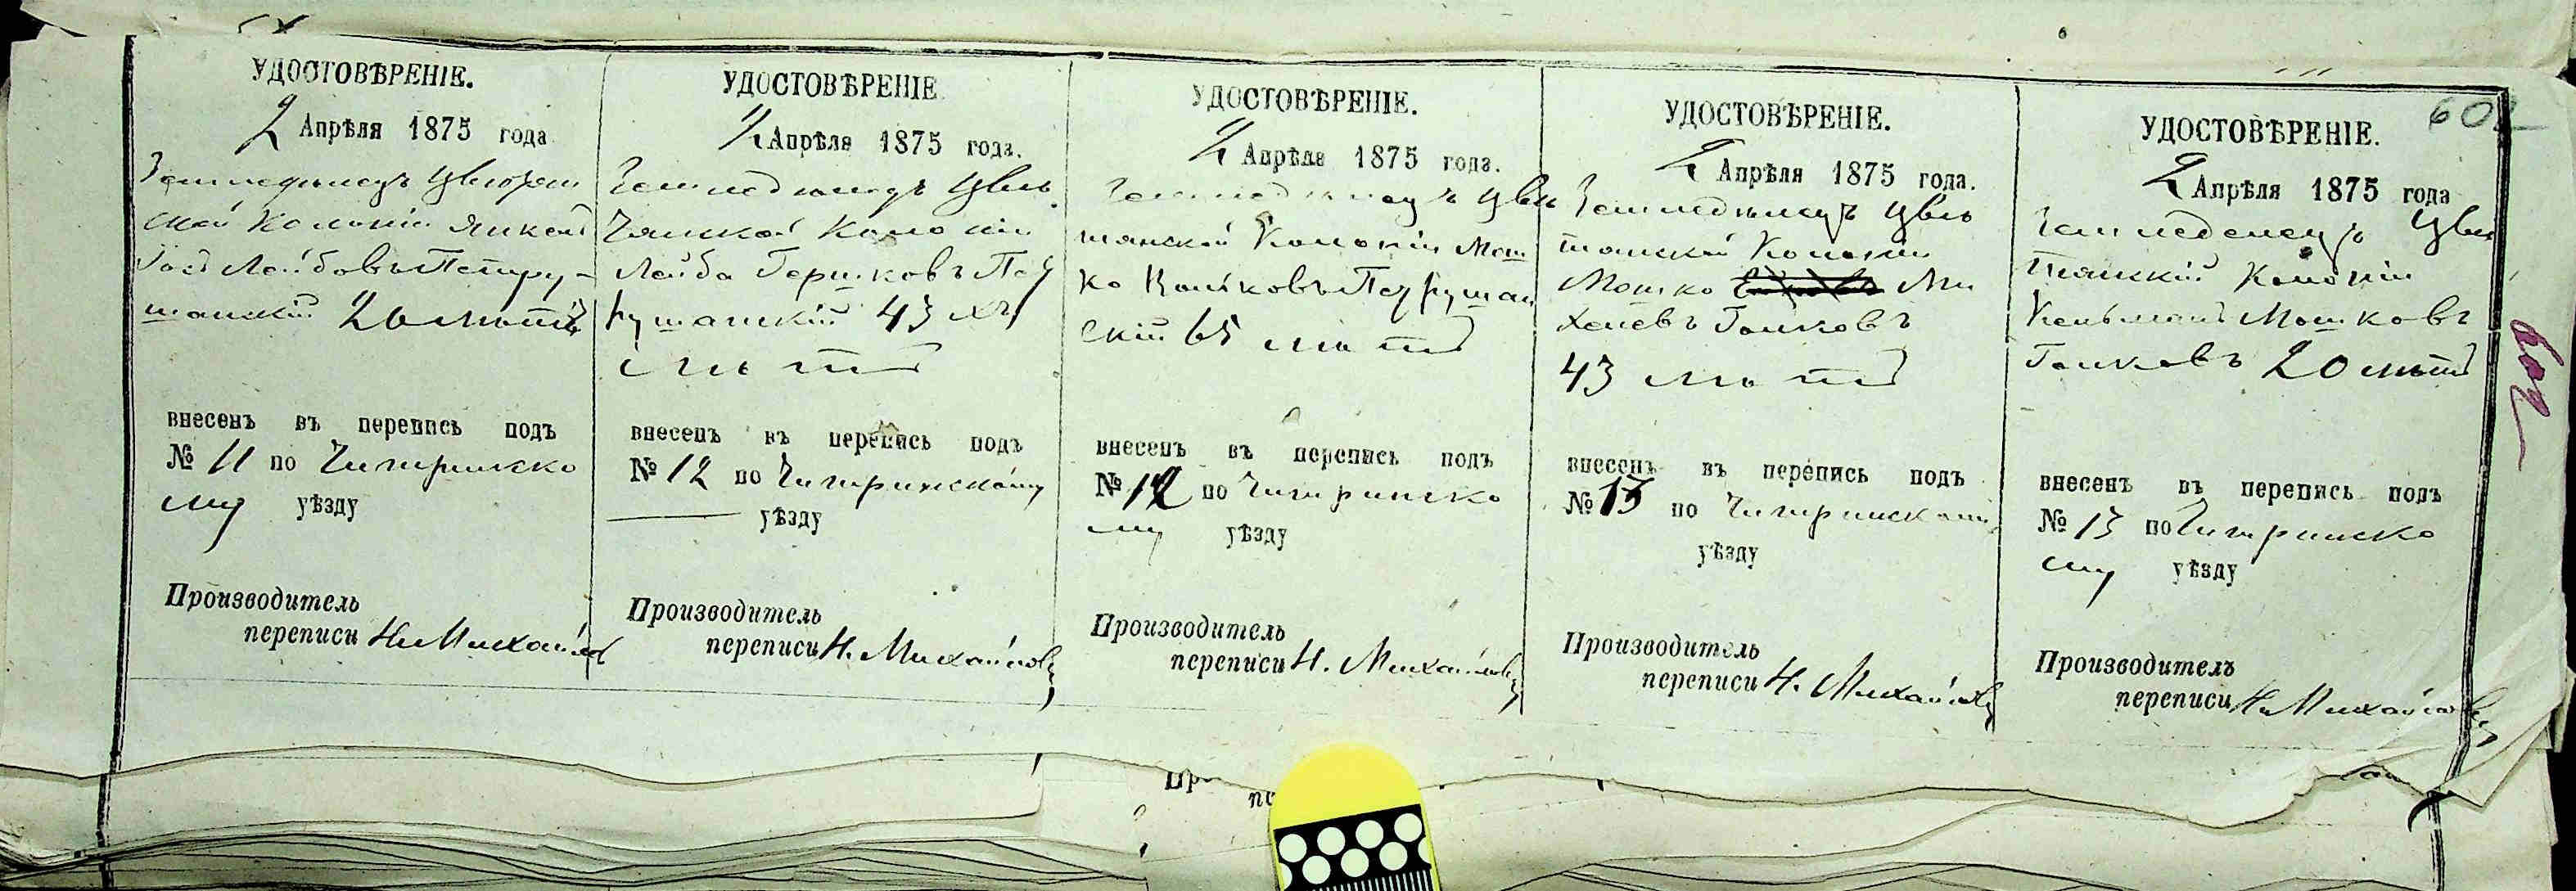 602
УДОСТОВѢРЕНІЕ.
2 Апрѣля 1875 года
Земледѣлецъ Цвѣтян
ской Колоніи Янкель
Лейбовъ Петру-
шанскій 20 лѣтъ
внесенъ въ перепись подъ
№ 11 по Чигиринско
му уѣзду
Производитель
переписи Н. Михайлов
УДОСТОВѢРЕНІЕ
2 Апрѣля 1875 года.
Земледѣлецъ Цвѣ
тянской Колоніи
Лейба Гершковъ Пет
рушанскій 43 хъ
лѣтъ
внесенъ въ перепись подъ
№ 12 по Чигиринскому
уѣзду
Производитель
переписи Н. Михайловъ
УДОСТОВѢРЕНІЕ.
2 Апрѣля 1875 года.
Земледѣлецъ Цвѣ
тянской Колоніи Мош
ко Петрушан
скій 65 лѣтъ
внесенъ въ перепись подъ
№ 12 по Чигиринско
му уѣзду
Производитель
переписи Н. Михайловъ
УДОСТОВѢРЕНІЕ.
2 Апрѣля 1875 года.
Земледѣлецъ Цвѣ
тянской Колоніи
Мошко Ми
хелевъ Голковъ
43 лѣтъ
внесенъ въ перепись подъ
№ 13 по Чигиринскому
уѣзду
Производитель
переписи Н. Михайловъ
УДОСТОВѢРЕНІЕ.
2 Апрѣля 1875 года
Земледелецъ Цвѣ
тянской Колоніи
Кельманъ Мошковъ
Голковъ 20 лѣтъ
внесенъ въ перепись подъ
№ 13 по Чигиринско
му уѣзду
Производитель
переписи Н. Михайловъ
602